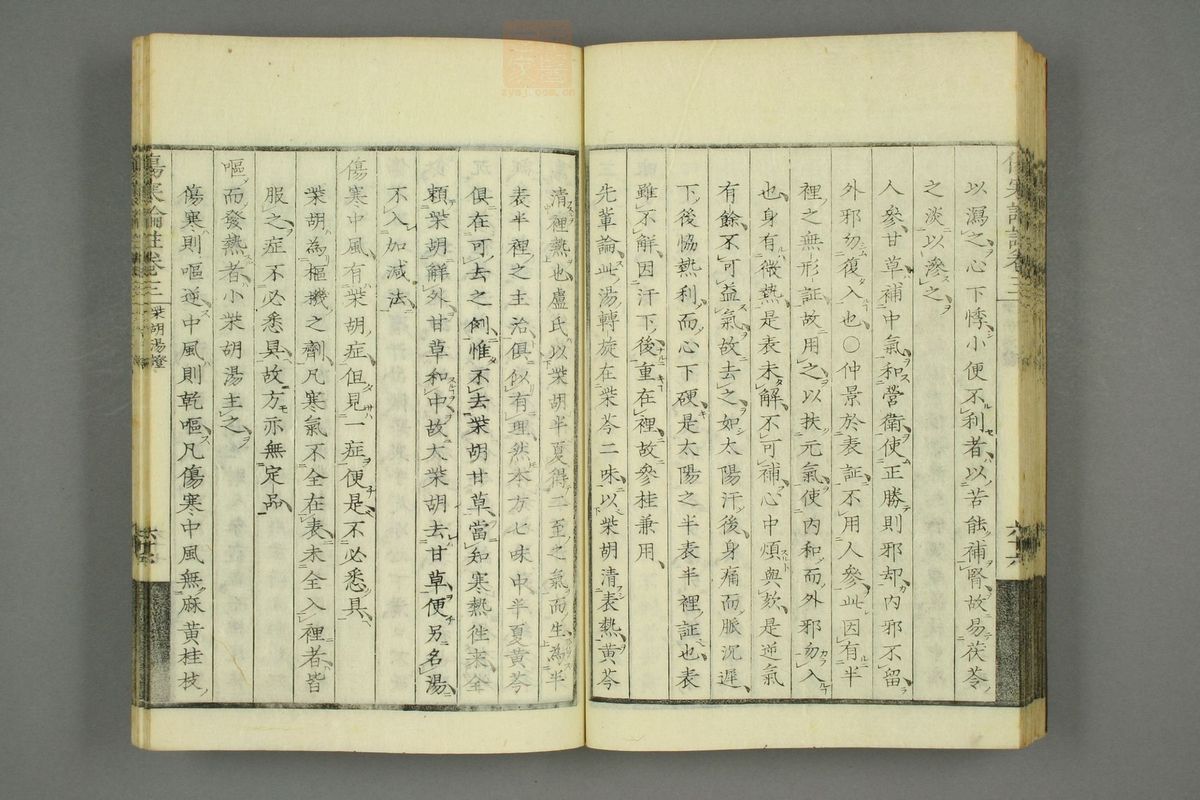 以瀉之心下悸小便不利者以苦能補腎故易茯苓
之淡以滲之
人參甘草補中氣和營衛使正勝則邪却內邪不留
外邪勿復入也〇仲景於表証不用人參此因有半
裡之無形証故用之以扶元氣使內和而外邪勿入
也身有微熱是表未解不可補心中煩與欬是逆氣
有餘不可益氣故去之如太陽汗後身痛而脈沉遲
下後恊熱利而心下硬是太陽之半表半裡証也表
雖不解因汗下後重在裡故參桂兼用
先輩論此湯轉旋在柴芩二味以柴胡清表熱黃芩
清裡熱也盧氏以柴胡半夏得二至之氣而生為半
表半裡之主治俱似有理然本方七味中半夏黃芩
俱在可去之例惟不去柴胡甘草當知寒熱徃來全
頼柴胡解外甘草和中故大柴胡去甘草便另名湯
不入加減法
傷寒中風有柴胡症但見一症便是不必悉具
柴胡為樞機之劑凡寒氣不全在表未全入裡者皆
服之症不必悉具故方亦無定品
嘔而發熱者小柴胡湯主之
傷寒則嘔逆中風則乾嘔凡傷寒中風無麻黃桂枝
傷寒論註卷三 柴胡湯證
zysj.com.cn